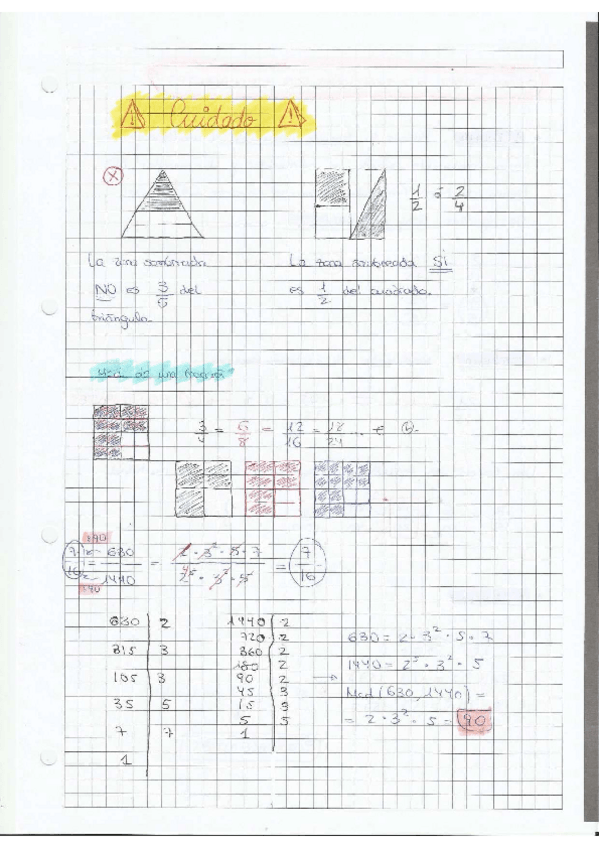 ⚠ Cuidado ⚠
1/2 ó 2/4
La zona sombreada
NO es 3/5 del
triángulo.
La zona sombreada SÍ
es 1/2 del cuadrado.
3/4 = 6/8 = 12/16 = 18/24 ... €
7/16 = 630/1440 = 2 · 3² · 5 · 7 / 2⁵ · 3² · 5 = 7/16
630 | 2
315 | 3
105 | 3
35 | 5
7 | 7
1
1440 | 2
720 | 2
360 | 2
180 | 2
90 | 2
45 | 3
15 | 3
5 | 5
1
630 = 2 · 3² · 5 · 7
1440 = 2⁵ · 3² · 5
Mcd (630, 1440) =
= 2 · 3² · 5 = 90